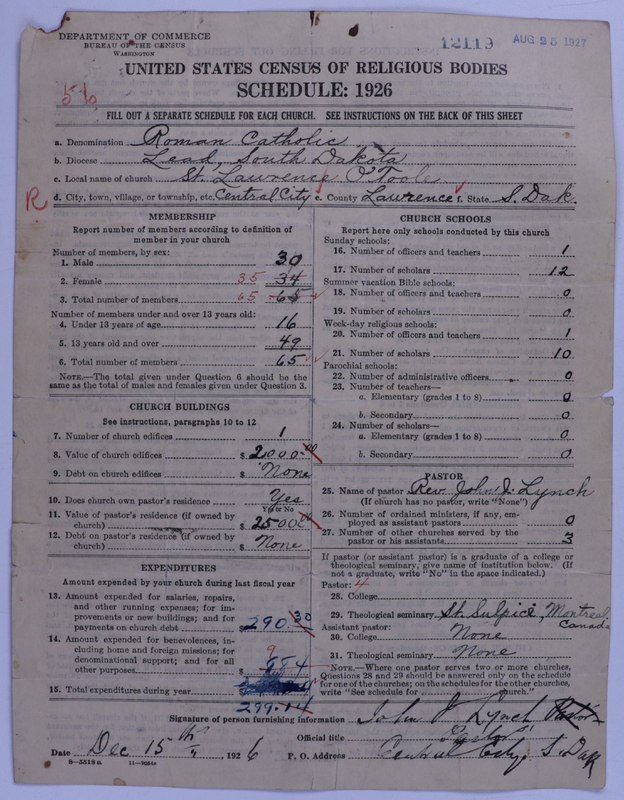 DEPARTMENT OF COMMERCE
BUREAU OF THE CENSUS
WASHINGTON
12119
AUG 25 1927
UNITED STATES CENSUS OF RELIGIOUS BODIES
SCHEDULE: 1926
FILL OUT A SEPARATE SCHEDULE FOR EACH CHURCH. SEE INSTRUCTIONS ON THE BACK OF THIS SHEET
a. Denomination Roman Catholic
b. Diocese Lead, South Dakota
c. Local name of church St. Lawrence O'Toole
R
d. City, town, village, or township, etc. Central City e. County Lawrence f. State S. Dak.
MEMBERSHIP
Report number of members according to definition of
member in your church
Number of members, by sex:
1. Male 30
2. Female 35 34
3. Total number of members 65 65
Number of members under and over 13 years old:
4. Under 13 years of age 16
5. 13 years old and over 49
6. Total number of members 65
NOTE.—The total given under Question 6 should be the
same as the total of males and females given under Question 3.
CHURCH BUILDINGS
See instructions, paragraphs 10 to 12
7. Number of church edifices 1
8. Value of church edifices $ 2000.00
9. Debt on church edifices $ None
10. Does church own pastor's residence Yes
Yes or No
11. Value of pastor's residence (if owned by
church) $ 2500.00
12. Debt on pastor's residence (if owned by
church) $ None
EXPENDITURES
Amount expended by your church during last fiscal year
13. Amount expended for salaries, repairs,
and other running expenses; for im-
provements or new buildings; and for
payments on church debt $ 290.30
14. Amount expended for benevolences, in-
cluding home and foreign missions; for
denominational support; and for all
other purposes $
15. Total expenditures during year $
299.14
CHURCH SCHOOLS
Report here only schools conducted by this church
Sunday schools:
16. Number of officers and teachers 1
17. Number of scholars 12
Summer vacation Bible schools:
18. Number of officers and teachers 0
19. Number of scholars 0
Week-day religious schools:
20. Number of officers and teachers 1
21. Number of scholars 10
Parochial schools:
22. Number of administrative officers 0
23. Number of teachers—
a. Elementary (grades 1 to 8) 0
b. Secondary 0
24. Number of scholars—
a. Elementary (grades 1 to 8) 0
b. Secondary 0
PASTOR
25. Name of pastor Rev. John J. Lynch
(If church has no pastor, write "None")
26. Number of ordained ministers, if any, em-
ployed as assistant pastors 0
27. Number of other churches served by the
pastor or his assistants 3
If pastor (or assistant pastor) is a graduate of a college or
theological seminary, give name of institution below. (If
not a graduate, write "No" in the space indicated.)
Pastor: 4
28. College
29. Theological seminary St. Sulpice, Montreal,
Canada
Assistant pastor:
30. College None
31. Theological seminary None
NOTE.—Where one pastor serves two or more churches,
Questions 28 and 29 should be answered only on the schedule
for one of the churches; on the schedules for the other churches,
write "See schedule for church."
Signature of person furnishing information John J Lynch Pastor
Official title Pastor
Date Dec 15th, 1926 P. O. Address Central City, S. Dak
8—5518a 11—